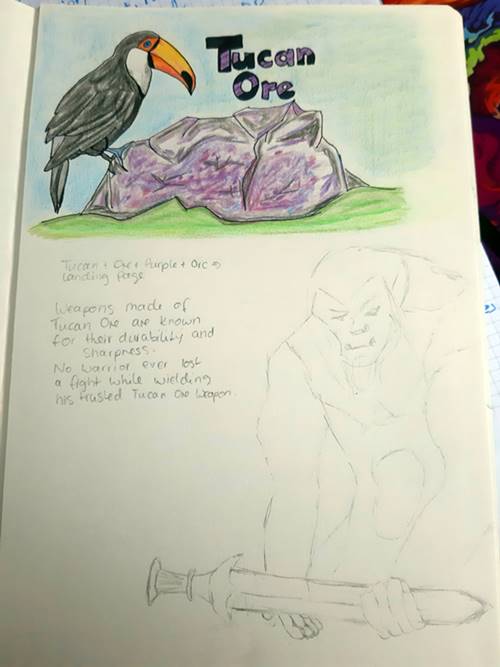 Tucan
Ore
Tucan + Ore + Purple + Orc =>
Landing Page
Weapons made of
Tucan Ore are known
for their durability and
Sharpness.
No warrior ever lost
a fight while wielding
his trusted Tucan Ore Weapon.